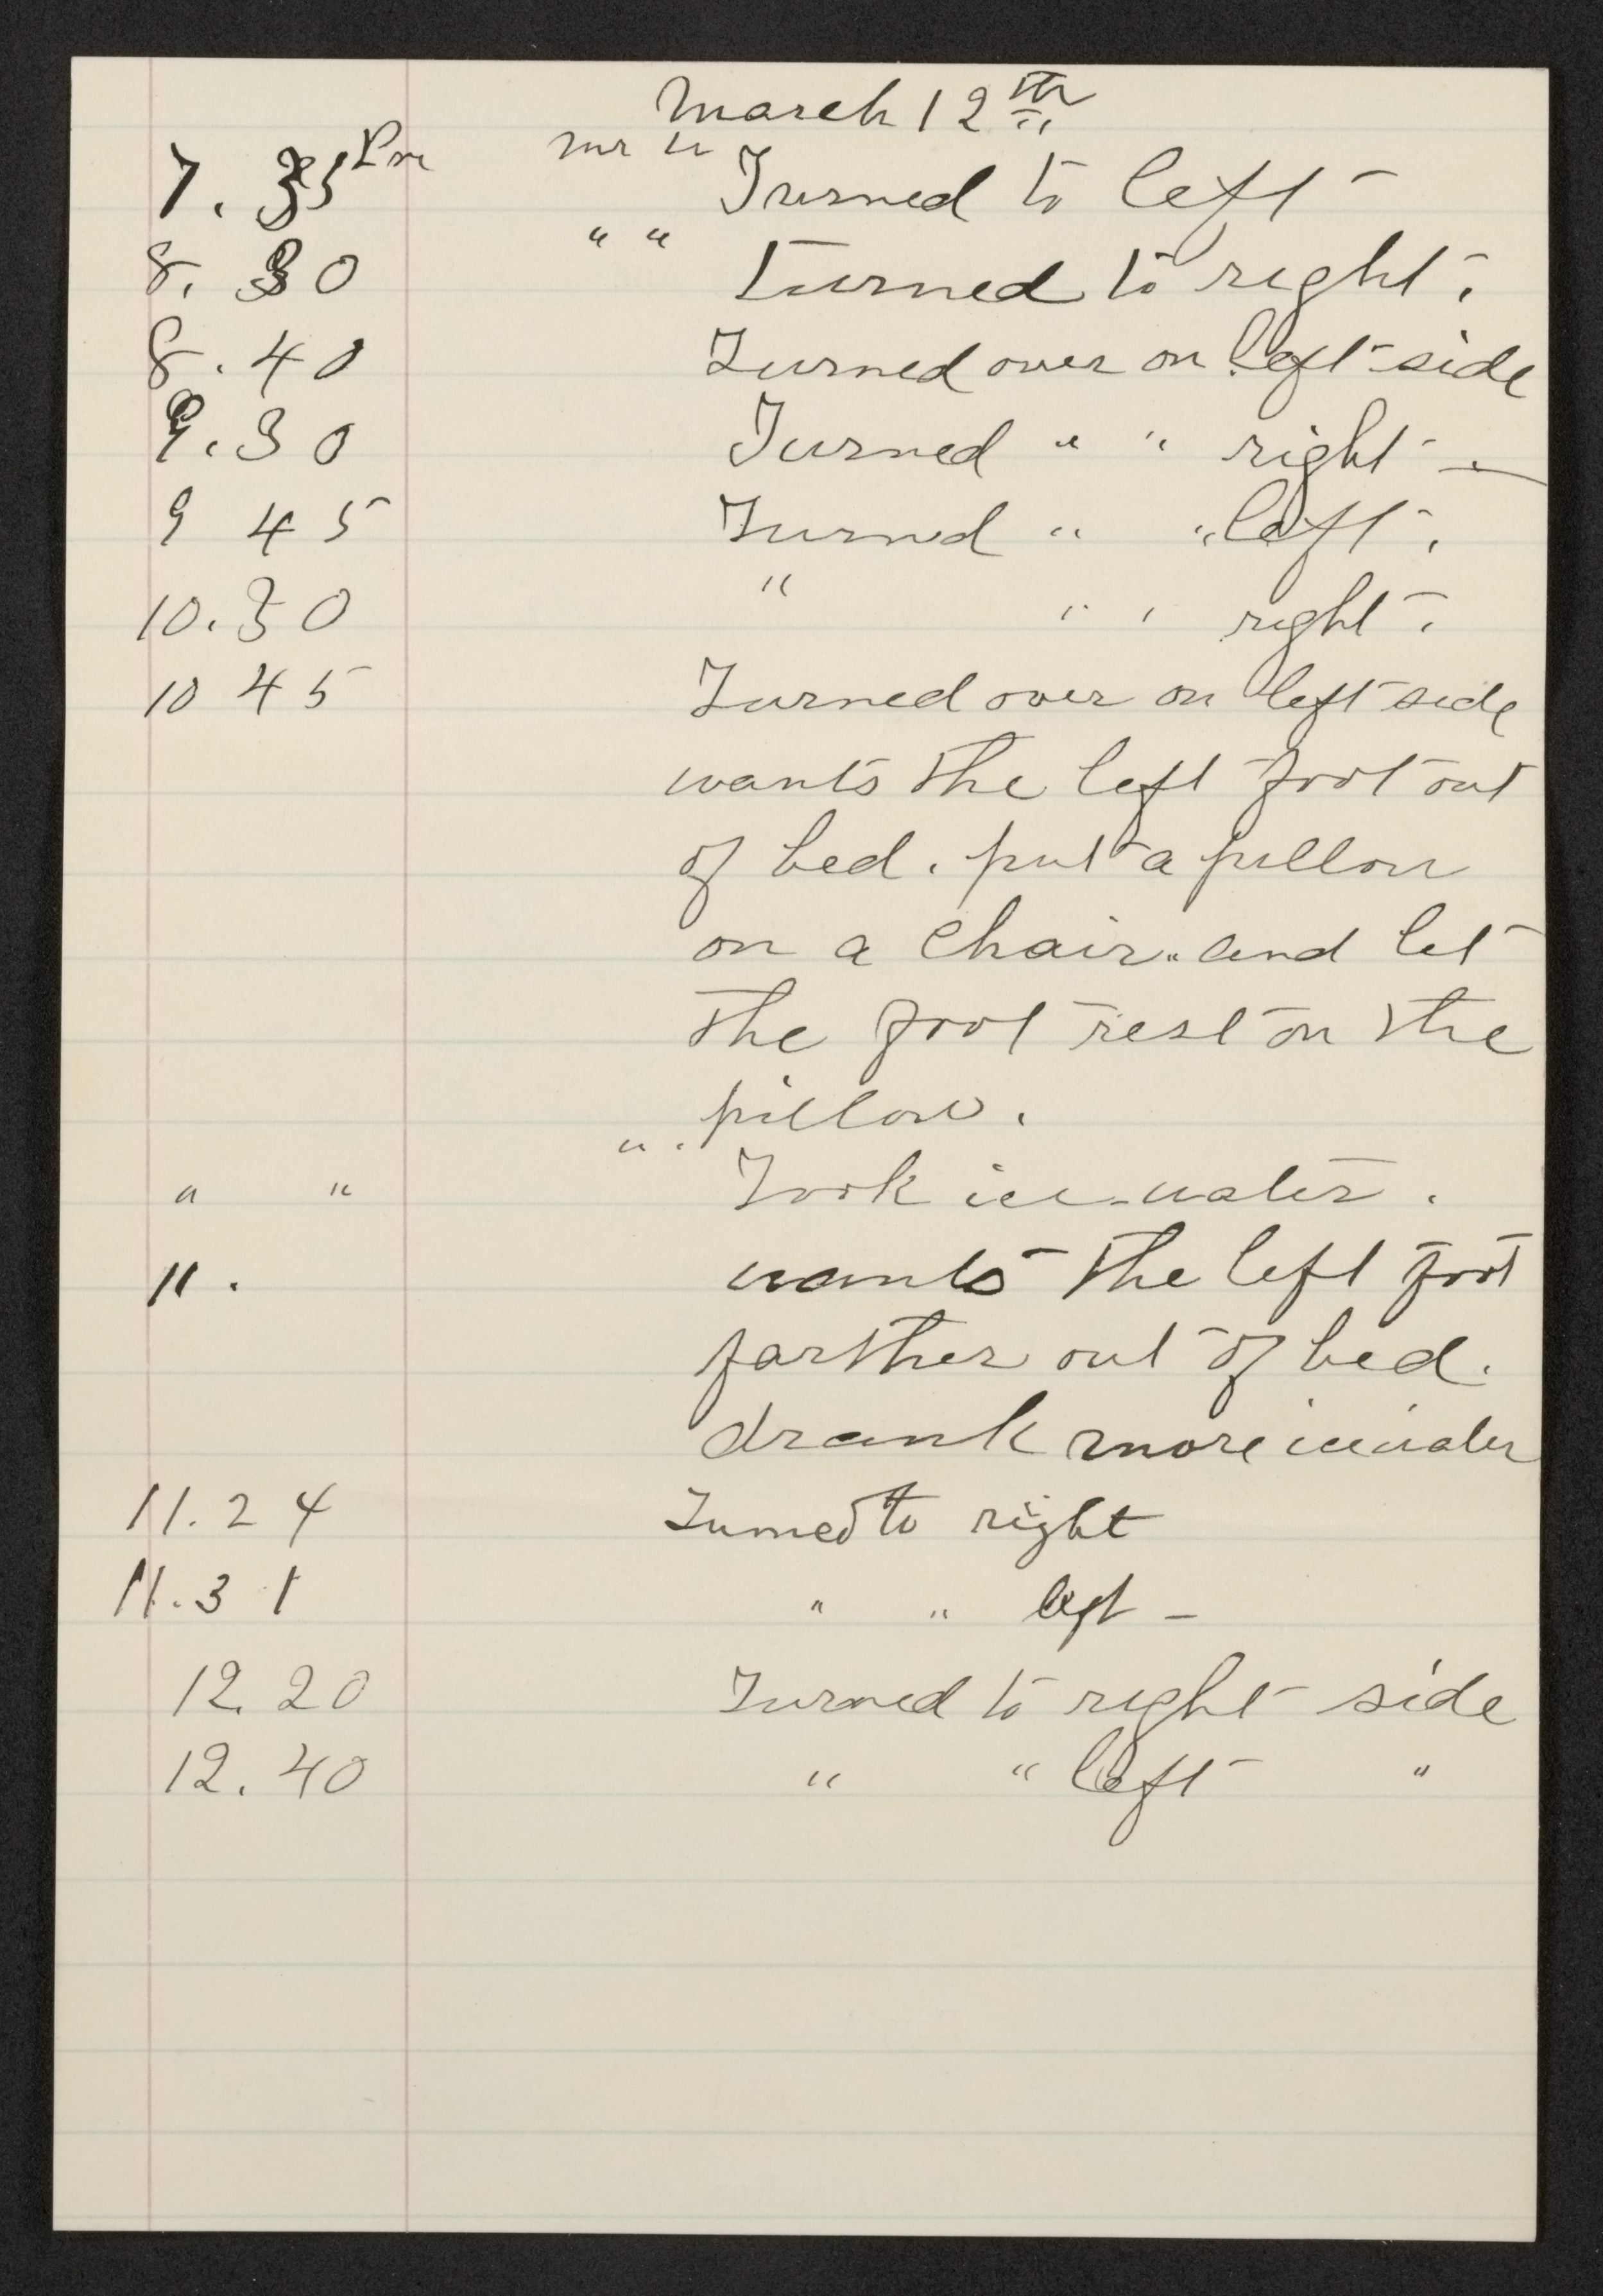 March 12th
7.35 Pm Mr " Turned to left
8.30 " " turned to right.
8.40 Turned over on left side
9.30 Turned " " right -
9 45 Turned " " left.
10.30 " " " right.
10 45 Turned over on left side
wants the left foot out
of bed. put a pillow
on a chair " and let
the foot rest on the
pillow.
" " " . Took ice-water.
11. wants the left foot
farther out of bed.
drank more icewater
11.24 Turned to right
11.31 " " left -
12.20 Turned to right side
12.40 " " left "